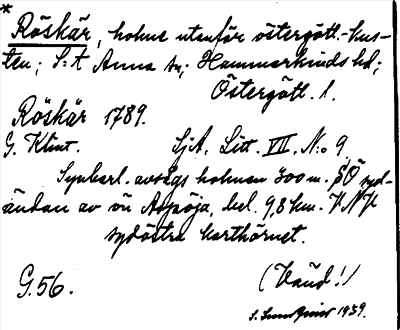 * Röskär, holme utanför östergötl.-kus-
ten; S:t Anna sn; Hammarkinds hd;
Östergötl. l.
Röskär 1789.
G. Klint. SjA. Litt. VII. N:o 9.
Synbarl. avsågs holmen 300 m. SÖ syd-
ändan av ön Aspöja, bel. 9,8 km. VNV
sydöstra karthörnet.
G.56. (Vaud!)
1939.